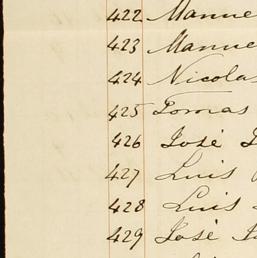 422 Manue
423 Manue
424 Nicolas
425 Tomas
426 José
427 Luis
428 Luis
429 José